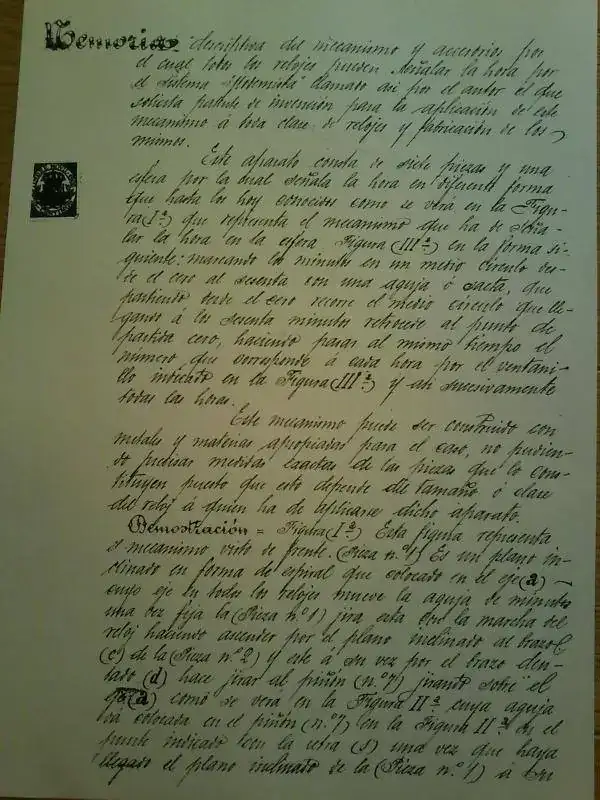 Memoria descriptiva del mecanismo y accesorios por
el cual todos los relojes pueden señalar la hora por
el sistema llamado asi por el autor el que
solicita patente de invención para la aplicación de este
mecanismo á toda clase de relojes y fabricación de los
mismos.
Este aparato consta de siete piezas y una
esfera por la cual señala la hora en diferente forma
que hasta los hoy conocidos como se verá en la Figu-
ra (Iª) que representa el mecanismo que ha de seña-
lar la hora en la esfera Figura (IIIª) en la forma si-
guiente: marcando los minutos en un medio circulo des-
de el cero al sesenta con una aguja ó saeta, que
partiendo desde el cero recorre el medio circulo que lle-
gando á los sesenta minutos retrocede al punto de
partida cero, haciendo pasar al mismo tiempo el
número que corresponde á cada hora por el ventani-
llo indicado en la Figura (IIIª) y asi sucesivamente
todas las horas.
Este mecanismo puede ser construido con
metales y materias apropiadas para el caso, no pudien-
do precisar medidas exactas de las piezas que lo cons-
tituyen puesto que esto depende del tamaño ó clase
del reloj á quien ha de aplicarse dicho aparato.
Demostración = Figura (Iª) Esta figura representa
el mecanismo visto de frente. (Pieza n.º 1) Es un plano in-
clinado en forma de espiral que colocado en el eje (a)
cuyo eje en todos los relojes mueve la aguja de minutos
una vez fija la (Pieza n.º 1) jira esta con la marcha del
reloj haciendo ascender por el plano inclinado al brazo
(c) de la (Pieza n.º 2) y este á su vez por el brazo den-
tado (d) hace jirar al piñón (n.º 7) jirando sobre el
eje (a) como se verá en la Figura IIª cuya aguja
vá colocada en el piñón (n.º 7) en la Figura IIª en el
punto indicado con la letra (s) una vez que haya
llegado el plano inclinado de la (Pieza n.º 1) á su